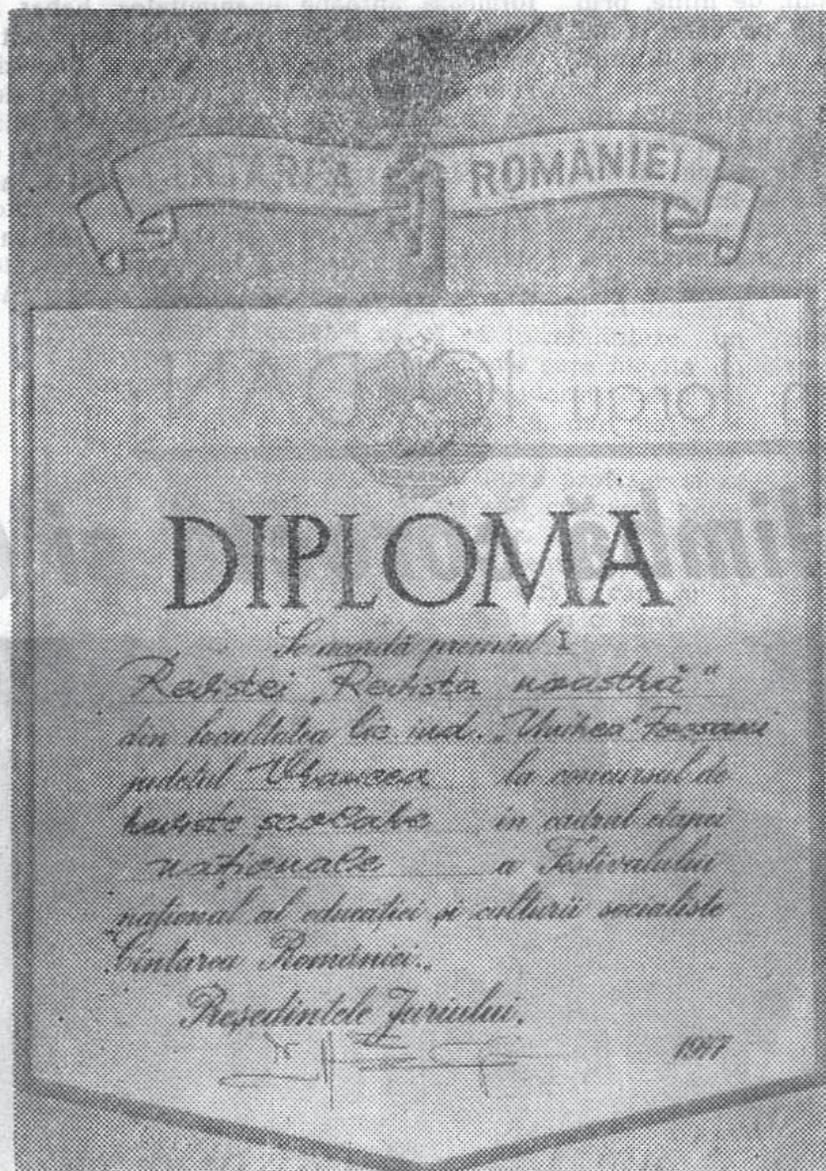 CÎNTAREA ROMÂNIEI
DIPLOMA
Se acordă premiul I
Revistei „Revista noastră"
din localitatea Lic. ind. „Unirea" Focşani
judeţul Vrancea la concursul de
reviste şcolare în cadrul etapei
naţionale a Festivalului
naţional al educaţiei şi culturii socialiste
„Cîntarea României„
Preşedintele Juriului,
1977